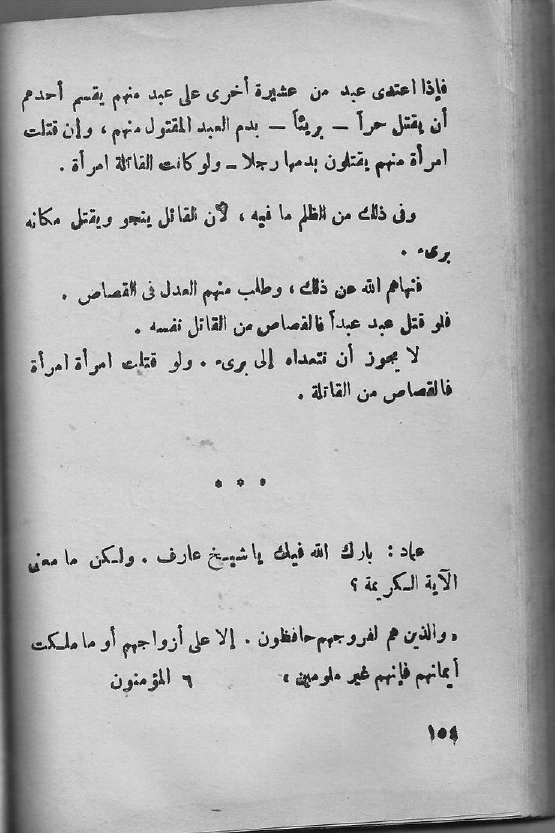 فإذا اعتدى عبد من عشيرة أخرى على عبد منهم يقسم أحدهم
أن يقتل حراً — بريئاً — بدم العبد المقتول منهم ، وإن قتلت
امرأة منهم يقتلون بدمها رجلا — ولو كانت القاتلة امرأة .
وفى ذلك من الظلم ما فيه ، لأن القاتل ينجو ويقتل مكانه
برىء .
فنهاهم الله عن ذلك ، وطلب منهم العدل فى القصاص .
فلو قتل عبد عبداً فالقصاص من القاتل نفسه .
لا يجوز أن نتعداه إلى برىء . ولو قتلت امرأة امرأة
فالقصاص من القاتلة .
* * *
عماد : بارك الله فيك يا شيخ عارف . ولكن ما معنى
الآية الكريمة ؟
« والذين هم لفروجهم حافظون . إلا على أزواجهم أو ما ملكت
أيمانهم فإنهم غير ملومين » ٦ المؤمنون
١٥٤